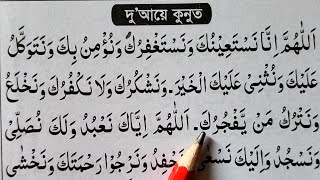 দু'আয়ে কুনুত
اَللّٰهُمَّ اِنَّا نَسْتَعِيْنُكَ وَنَسْتَغْفِرُكَ وَنُؤْمِنُ بِكَ وَنَتَوَكَّلُ
عَلَيْكَ وَنُثْنِىْ عَلَيْكَ الْخَيْرَ۔ وَنَشْكُرُكَ وَلَا نَكْفُرُكَ وَنَخْلَعُ
وَنَتْرُكُ مَنْ يَّفْجُرُكَ۔ اَللّٰهُمَّ اِيَّاكَ نَعْبُدُ وَلَكَ نُصَلِّىْ
وَنَسْجُدُ وَاِلَيْكَ نَسْعٰى وَنَحْفِدُ وَنَرْجُوْا رَحْمَتَكَ وَنَخْشٰى